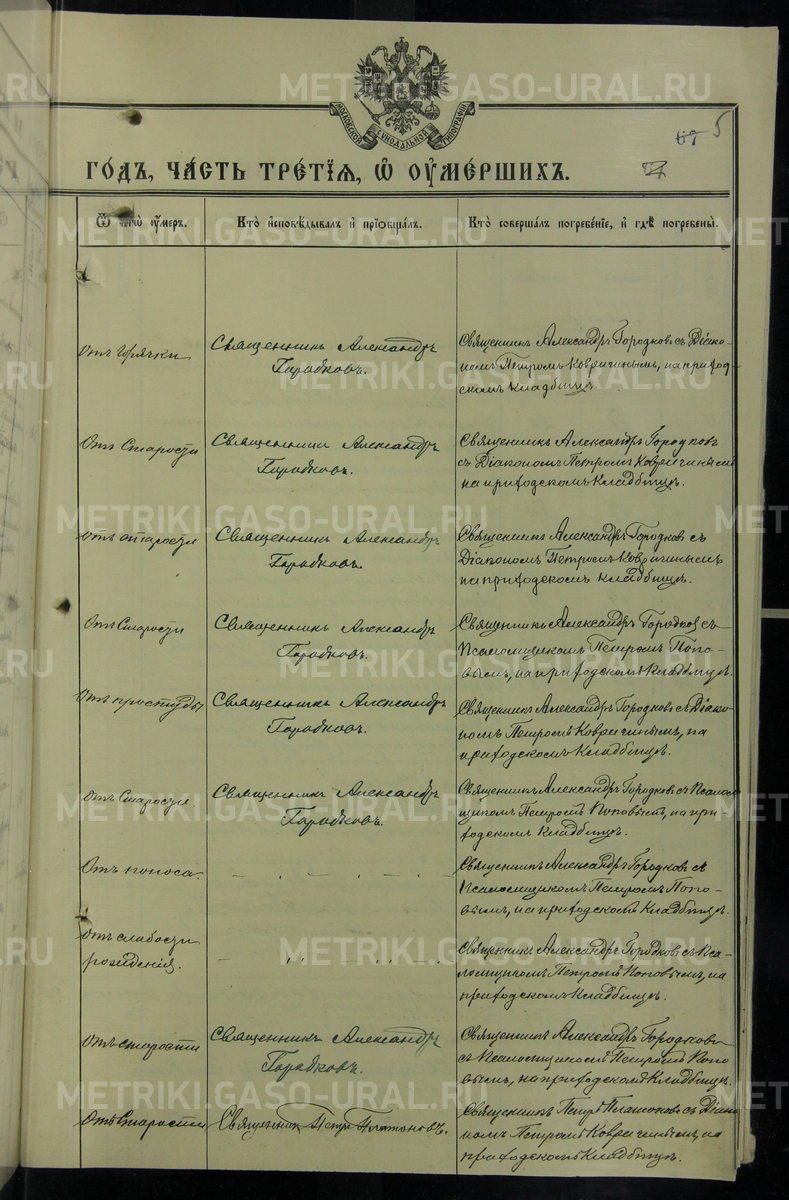 МОСКОВСКОЙ СѴНОДАЛЬНОЙ ТИПОГРАФІИ
67 5
ГО́ДЪ, ЧА́СТЬ ТРЕ́ТІѦ, Ѡ҆ ОУ҆МЕ́РШИХЪ.
Ѿ чегѡ̀ ᲂу҆́меръ.
Кто̀ и҆сповѣ́дывалъ и҆ прїѡбща́лъ.
Кто̀ соверша́лъ погребе́нїе, и҆ гдѣ̀ погребены̀.
Отъ горячки
Священникъ Александръ
Городковъ.
Священникъ Александръ Городковъ съ Діако-
номъ Петромъ Ковригинымъ, на приход-
скомъ кладбищѣ.
Отъ Старости
Священникъ Александръ
Городковъ.
Священникъ Александръ Городковъ
съ Діакономъ Петромъ Ковригинымъ
на приходскомъ кладбищѣ.
Отъ старости
Священникъ Александръ
Городковъ.
Священникъ Александръ Городковъ съ
Діакономъ Петромъ Ковригинымъ
на приходскомъ кладбищѣ.
Отъ Старости
Священникъ Александръ
Городковъ.
Священникъ Александръ Городковъ съ
Псаломщикомъ Петромъ Попо-
вымъ, на приходскомъ кладбищѣ.
Отъ простуды
Священникъ Александръ
Городковъ.
Священникъ Александръ Городковъ съ Діако-
номъ Петромъ Ковригинымъ, на
приходскомъ кладбищѣ.
Отъ Старости
Священникъ Александръ
Городковъ.
Священникъ Александръ Городковъ съ Псалом-
щикомъ Петромъ Поповымъ, на при-
ходскомъ кладбищѣ.
Отъ поноса.
Священникъ Александръ Городковъ съ
Псаломщикомъ Петромъ Попо-
вымъ, на приходскомъ кладбищѣ.
Отъ слабости
рожденія.
Священникъ Александръ Городковъ съ Пса-
ломщикомъ Петромъ Поповымъ, на
приходскомъ кладбищѣ.
Отъ старости
Священникъ Александръ
Городковъ.
Священникъ Александръ Городковъ
съ Псаломщикомъ Петромъ Попо
вымъ, на приходскомъ кладбищѣ.
Отъ Старости
Священникъ Петръ Платоновъ.
Священникъ Петръ Платоновъ съ Діако
номъ Петромъ Ковригинымъ, на
приходскомъ кладбищѣ.
METRIKI.GASO-URAL.RU